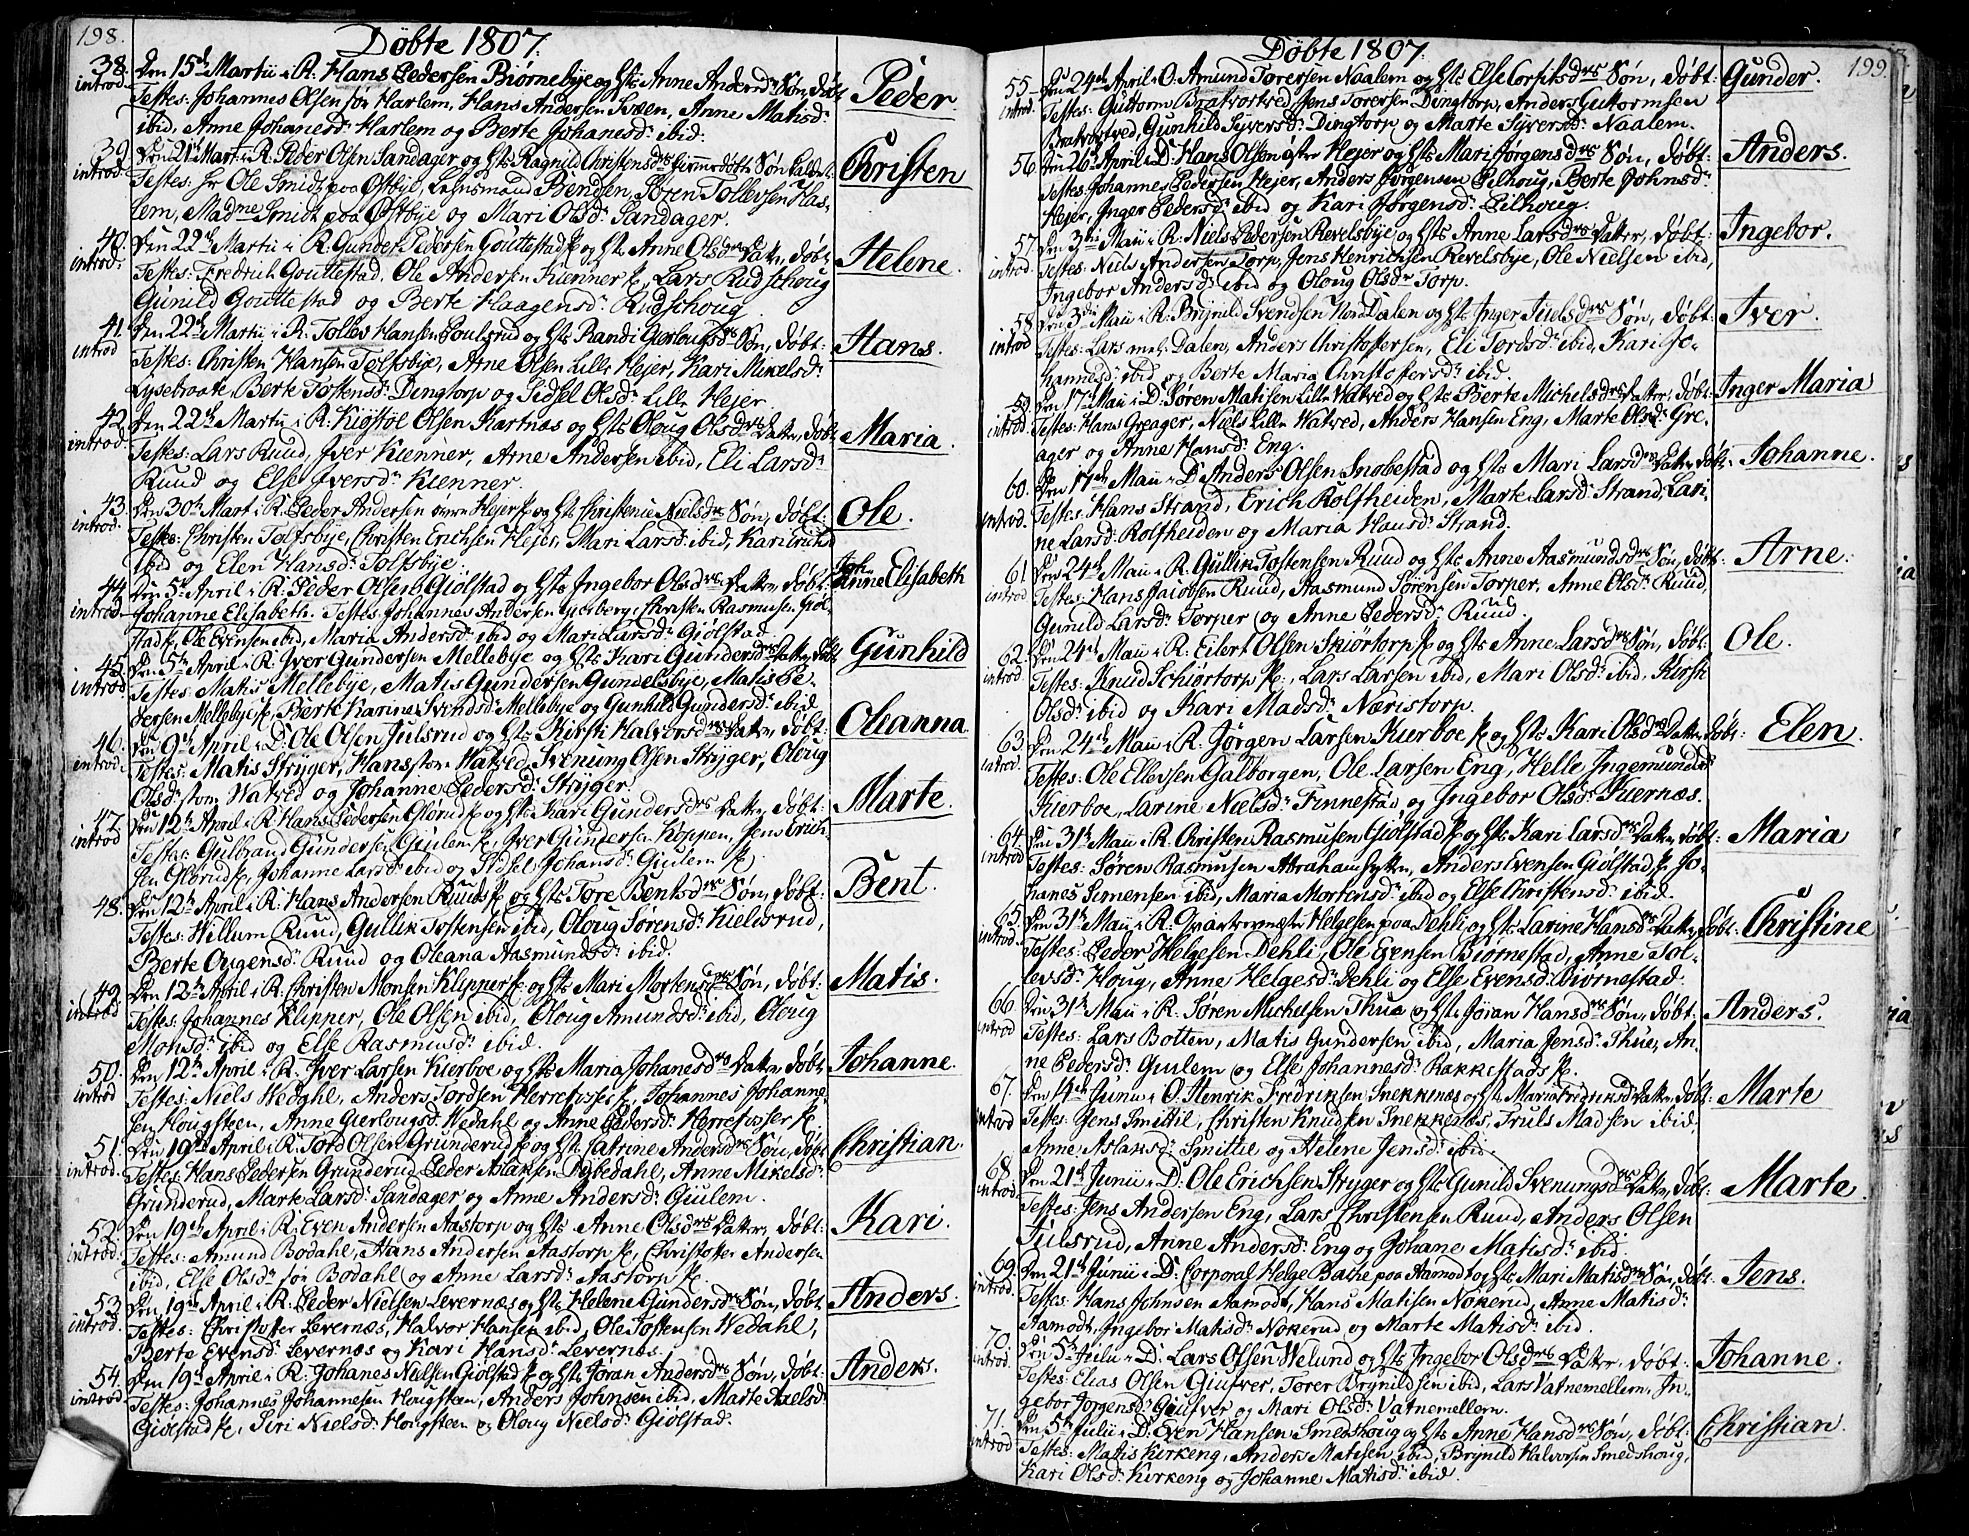 198.
Døbte 1807.
38. Den 15de Martii i R: Hans Pedersen Biørnebye og Hst: Anne Andersdrs Søn, døbt
introd. Testes: Johannes Olsen sør Harlem, Hans Andersen Sveen, Anne Matisdr
ibid, Anne Johanesdr Harlem og Berte Johanesdr ibid.
Peder.
39. Den 21de Martii i R. Peder Olsen Sandager og Hst: Ragnild Christensdrs Søn
introd. Testes: Hr Ole Smidt paa Østbye, Lensmand Bendsen, Søren Tollevsen Has-
lem, Madme Smidt paa Østbye og Mari Olsdr Sandager.
Christen
40. Den 22de Martii i R. Gunder Pedersen Gouttestad og Hst: Anne Olsdrs Datter, døbt
introd. Testes: Fredrich Gouttestad, Ole Andersen Kienner, Lars Rudschoug
Gunild Gouttestad og Berte Haagensdr Rudschoug.
Helene.
41. Den 22de Martii i R. Tollev Hansen Poulsrud og Hst: Randi Gierlougsdrs Søn, døbt:
introd Testes: Christen Hansen Tolfsbye, Arne Olsen Lille Hejer, Kari Mikelsdr
Lysebraate, Berte Tostensdr Dingtorp og Sidsel Olsdr Lille Hejer.
Hans.
42. Den 22de Martii i R: Kiøstol Olsen Kartnæs og Hst: Oloug Olsdrs Datter, døbt
introd. Testes: Lars Ruud, Iver Kienner, Arne Andersen ibid, Eli Larsdr
Ruud og Else Iversdr Kienner.
Maria.
43. Den 30te Mart: i R: Peder Andersen Hejer og Hst: Christenie Nielsdrs Søn, døbt:
introd. Testes: Christen Tolfsbye, Christen Erichsen Hejer, Mari Larsdr ibid, Kari Erichsd
ibid og Elen Hansdr Tolfsbye.
Ole.
44. Den 5te April i R: Peder Olsen Giølstad og Hst: Ingebor Olsdrs Datter døbt:
introd. Johanne Elisabeth. Testes: Johannes Andersen, Christen Rasmusen Giøl-
stad, Ole Evensen ibid, Maria Andersdr ibid og Mari Larsdr Giølstad.
Joh
Anne Elisabeth
45. Den 5te April i R: Iver Gundersen Mellebye og Hst: Kari Gundersdrs Datter, døbt
introd Testes: Matis Mellebye, Matis Gundersen Gundelsbye, Matis Pe
dersen Mellebye, Berte Karine Svendsdr Mellebye og Gunhild Gundersdr ibid.
Gunhild
46. Den 9de April i D: Ole Olsen Julsrud og Hst: Kirsti Halvorsdrs Datter, døbt:
introd. Testes: Matis Stryger, Hans stor Watved, Svenung Olsen Stryger, Oloug
Olsdr stor Watved og Johanne Pedersdr Stryger.
Oleanna.
47. Den 12te April i R: Hans Pedersen Glørud og Hst: Kari Gundersdrs Datter, døbt:
introd Testes: Gulbrand Gundersen Giulem, Iver Gundersen Koppen, Jens Erich-
sen Glørud, Johanne Larsdr ibid og Sidsel Johansdr Giulem.
Marte.
48. Den 12te April i R. Hans Andersen Ruud og Hst: Tore Bentsdrs Søn, døbt:
Testes: Willum Ruud, Gullik Tostensen ibid, Oloug Sørensdr Kielsrud,
Berte Ougensdr Ruud og Oleana Aasmundsdr ibid.
Bent.
49. Den 12te April i R. Christen Monsen Klipper og Hst: Mari Mortensdrs Søn, døbt:
introd Testes: Johannes Klipper, Ole Olsen ibid, Oloug Amundsdr ibid, Oloug
Monsdr ibid og Else Rasmusdr ibid.
Matis.
50. Den 12te April i R. Iver Larsen Kierboe og Hst: Maria Johanesdrs Datter, døbt:
introd Testes: Niels Wedahl, Anders Tordsen Herrefosser, Johannes Johanne,
sen Hougsteen, Anne Gierlougsdr Wedahl og Anne Pedersdr Herrefosser.
Johanne.
51. Den 19de April i R: Tord Olsen Grunderud og Hst: Catrine Andersdrs Søn, døbt
introd. Testes: Hans Pedersen Grunderud, Peder Aslaksen Dybedahl, Anne Mikelsdr
Grunderud, Marte Larsdr Sandager og Anne Andersdr Giulem.
Christian.
52. Den 19de April i R: Even Andersen Aastorp og Hst: Anne Olsdrs Datter, døbt:
introd. Testes: Amund Bodahl, Hans Andersen Aastorp, Christoffer Andersen
ibid, Else Olsdr sør Bodahl og Anne Larsdr Aastorp.
Kari.
53. Den 19de April i R: Peder Nielsen Levernæs og Hst: Helene Gundersdrs Søn, døbt
introd. Testes: Christoffer Levernæs, Halvor Hansen ibid, Ole Tostensen Wedahl,
Berte Evensdr Levernæs og Kari Hansdr Levernæs.
Anders.
54. Den 19de April i R. Johanes Nielsen Giølstad og Hst: Jøran Andersdrs Søn, døbt:
introd. Testes: Johannes Johannesen Hougsteen, Anders Johnsen ibid, Marte Axelsdr
Giølstad, Siri Nielsdr Hougsteen og Oloug Nielsdr Giølstad.
Anders.
199.
Døbte 1807.
55. Den 24de April i O. Amund Torersen Naalem og Hst: Else Corfitsdrs Søn, døbt:
introd. Testes: Guttorm Bratvortved, Jens Torersen Dingtorp, Anders Guttormsen
Bratvortved, Gunhild Syversdr Dingtorp og Marte Syversdr Naalem.
Gunder.
56. Den 26de April i D: Hans Olsen østre Hejer og Hst: Mari Jørgensdrs Søn, døbt:
Testes: Johannes Pedersen Hejer, Anders Jørgensen Pilhoug, Berte Johnsdr
Hejer, Inger Pedersdr ibid og Kari Jørgensdr Pilhoug.
Anders.
57. Den 3die Maii i R: Niels Pedersen Revelsbye og Hst: Anne Larsdrs Datter, døbt:
introd. Testes: Niels Andersen Torp, Jens Henrichsen Revelsbye, Ole Nielsen ibid,
Ingebor Andersdr ibid og Oloug Olsdr Torp.
Ingebor.
58. Den 3die Maii i R. Brynild Svendsen Hon Dalen og Hst: Inger Juelsdrs Søn, døbt:
introd Testes: Lars mel: Dalen, Anders Christoffersen, Eli Tordsdr ibid, Kari Jo-
hannesdr ibid og Berte Maria Christoffersdr ibid.
Iver.
59. Den 17de Maii i D: Søren Matisen Lille Watved og Hst: Berte Michelsdrs Datter, døbt:
introd. Testes: Hans Greager, Niels Lille Watved, Anders Hansen Eng, Marte Olsdr Gre,
ager og Anne Hansdr Eng.
Inger Maria
60. Den 17de Maii i D: Anders Olsen Snobestad og Hst: Mari Larsdrs Datter døbt:
introd. Testes: Hans Strand, Erich Rolfsheiden, Marte Larsdr Strand, Lari,
ne Larsdr Rolfsheiden og Maria Hansdr Strand.
Johanne.
61. Den 24de Maii i R. Gullik Tostensen Ruud og Hst: Anne Aasmundsdrs Søn, døbt:
introd Testes: Hans Jacobsen Ruud, Aasmund Sørensen Torper, Anne Olsdr Ruud,
Gunild Larsdr Torper og Anne Pedersdr Ruud.
Arne.
62. Den 24de Maii i R. Eilert Olsen Skiørtorp og Hst: Anne Larsdrs Søn, døbt:
introd. Testes: Knud Schiørtorp, Lars Larsen ibid, Mari Olsdr ibid, Kirsti
Olsdr ibid og Kari Madsdr Næristorp.
Ole.
63. Den 24de Maii i R. Jørgen Larsen Kierboe og Hst: Kari Olsdrs Datter, døbt:
introd. Testes: Ole Ellevsen Galborgen, Ole Larsen Eng, Helle Ingemundsdr
Kierboe, Larine Nielsdr Finnestad og Ingebor Olsdr Kiernæs.
Elen.
64. Den 31te Maii i R. Christen Rasmusen Giølstad og Hst: Kari Larsdrs Datter, døbt:
introd Testes: Søren Rasmusen Abrahamhytten, Anders Evensen Giølstad, Jo-
hanes Simensen ibid, Maria Mortensdr ibid og Else Christensdr ibid.
Maria
65. Den 31te Maii i R. Qvarteermæster Helgesen paa Dehli og Hst: Larine Hansdrs Datter, døbt:
introd. Testes: Peder Helgesen Dehli, Ole Evensen Biørnestad, Anne Tol-
levsdr Houg, Anne Helgesdr Dehli og Else Evensdr Biørnestad.
Christine
66. Den 31te Maii i R. Søren Michelsen Thue og Hst: Jøran Hansdrs Søn, døbt:
introd Testes: Lars Botten, Matis Gundersen ibid, Maria Jensdr Thue, An-
ne Pedersdr Giulem og Else Johannesdr Rakkestad.
Anders.
67. Den 14de Junii i O. Henrik Fredriksen Snekkenæs og Hst: Maria Fredriksdrs Datter, døbt:
introd Testes: Jens Smittil, Christen Knudsen Snekkenæs, Truls Madsen ibid,
Anne Aslaksdr Smittil og Helene Jensdr ibid.
Marte
68. Den 21de Junii i D: Ole Erichsen Stryger og Hst: Gunild Svenungsdrs Datter, døbt:
introd. Testes: Jens Andersen Eng, Lars Christensen Ruud, Anders Olsen
Julsrud, Anne Andersdr Eng og Johane Matisdr ibid.
Marte.
69. Den 21de Junii i D: Corporal Helge Bache paa Aamodt og Hst: Mari Matisdrs Søn, døbt:
introd. Testes: Hans Johnsen Aamodt, Hans Matisen Nokerud, Anne Matisdr
Aamodt, Ingebor Matisdr Nokerud og Marte Matisdr ibid.
Jens.
70. Den 5te Julii i D. Lars Olsen Welund og Hst: Ingebor Olsdrs Datter, døbt:
introd. Testes: Elias Olsen Giufver, Torer Brynildsen ibid, Lars Vatnemellem, In-
gebor Jørgensdr Giufver og Mari Olsdr Vatnemellem.
Johanne.
71. Den 5te Julii i D. Even Hansen Smedshoug og Hst: Anne Hansdrs Søn, døbt:
introd Testes: Matis Kirkeng, Anders Matisen ibid, Brynild Halvorsen Smedshoug,
Kari Olsdr Kirkeng og Johanne Matisdr ibid.
Christian.